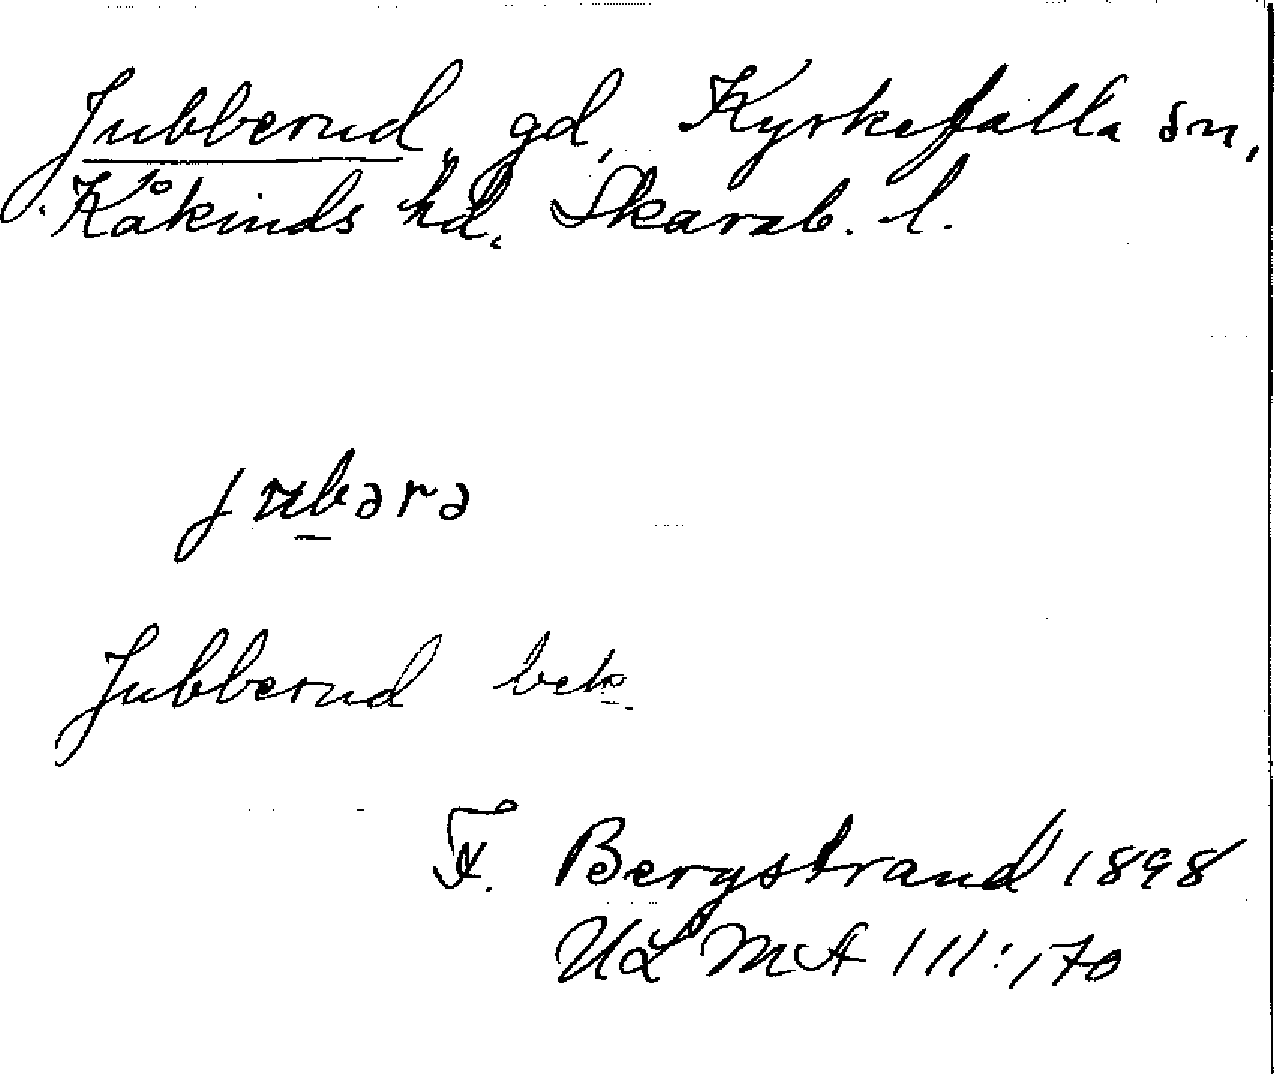 Jubberud, gd, Kyrkefalla sn,
Kåkinds hd, Skarab. l.
jubərə
Jubberud bek
F. Bergstrand 1898
ULMA 111:170